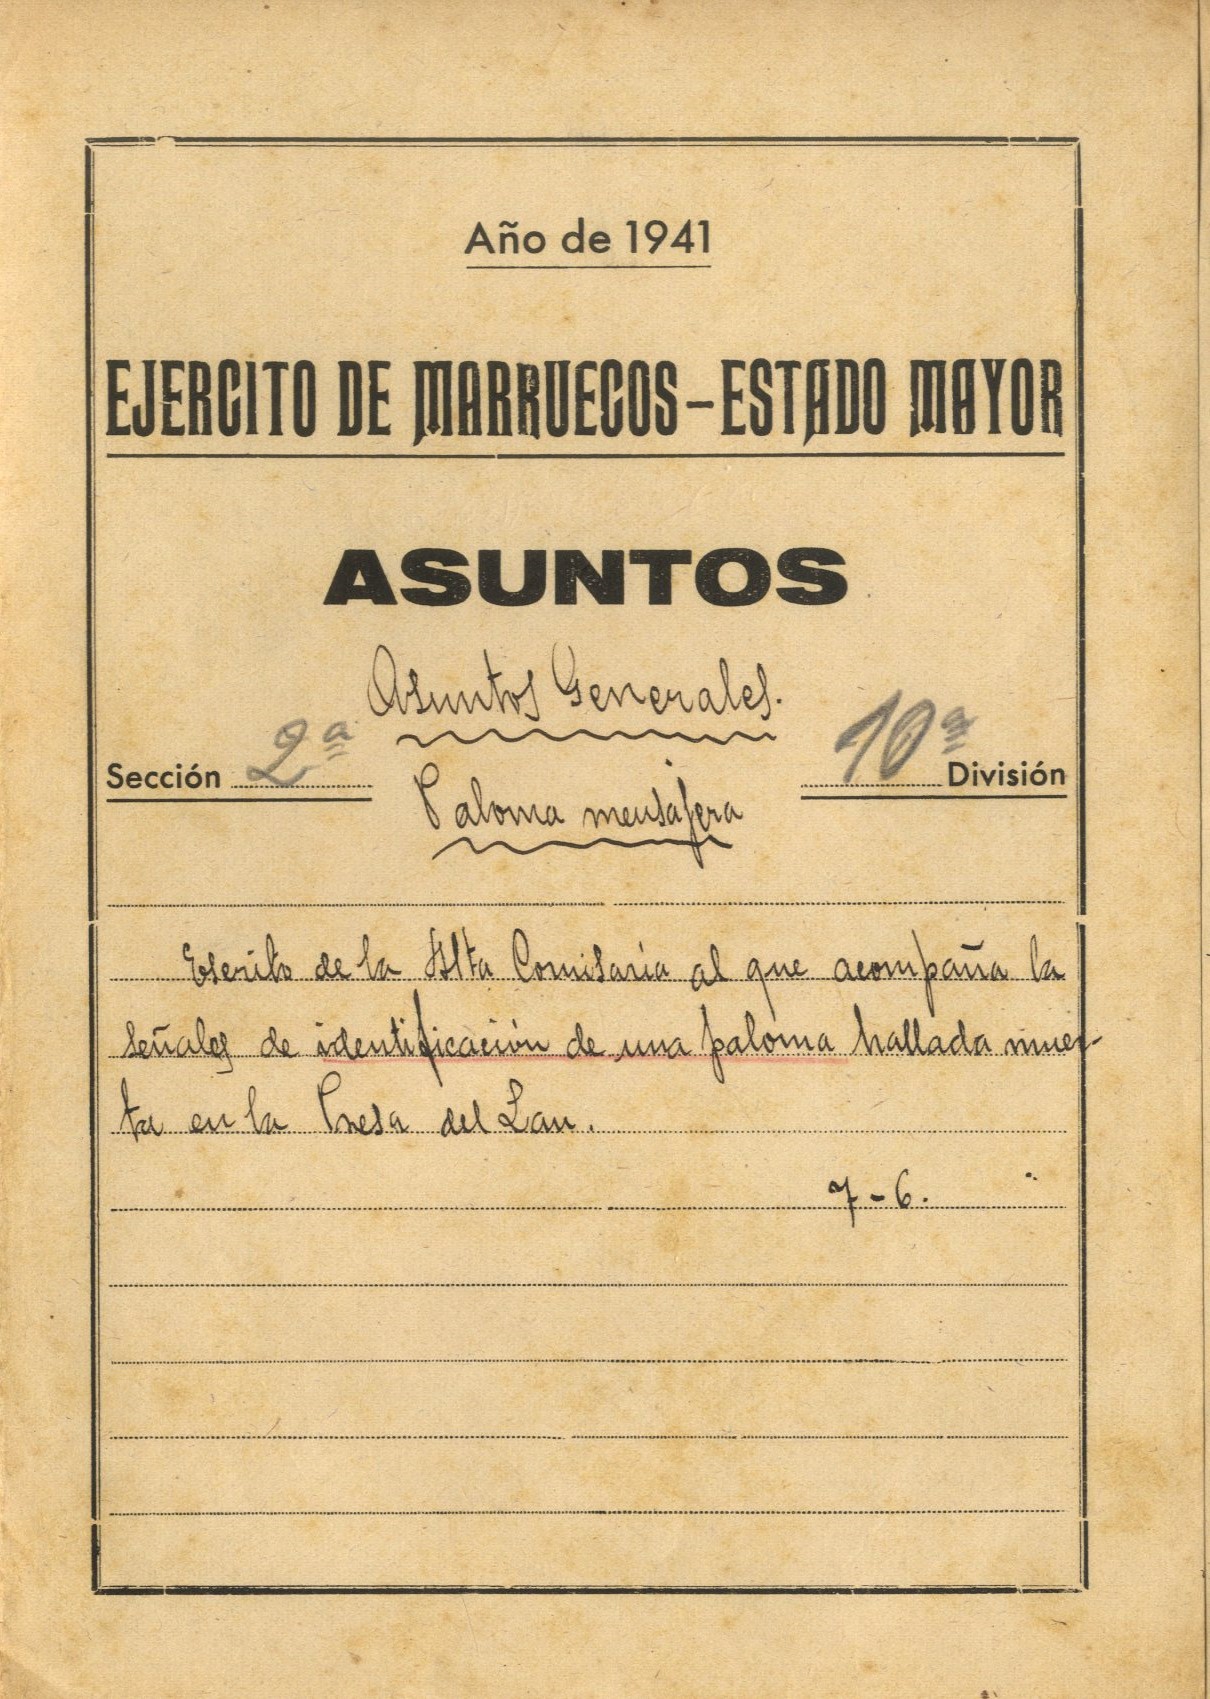 Año de 1941
EJERCITO DE MARRUECOS - ESTADO MAYOR
ASUNTOS
Asuntos Generales.
Sección 2ª
10ª División
Paloma mensajera
Escrito de la Alta Comisaría al que acompaña la
señales de identificación de una paloma hallada muer-
ta en la Presa del Lau.
7-6.